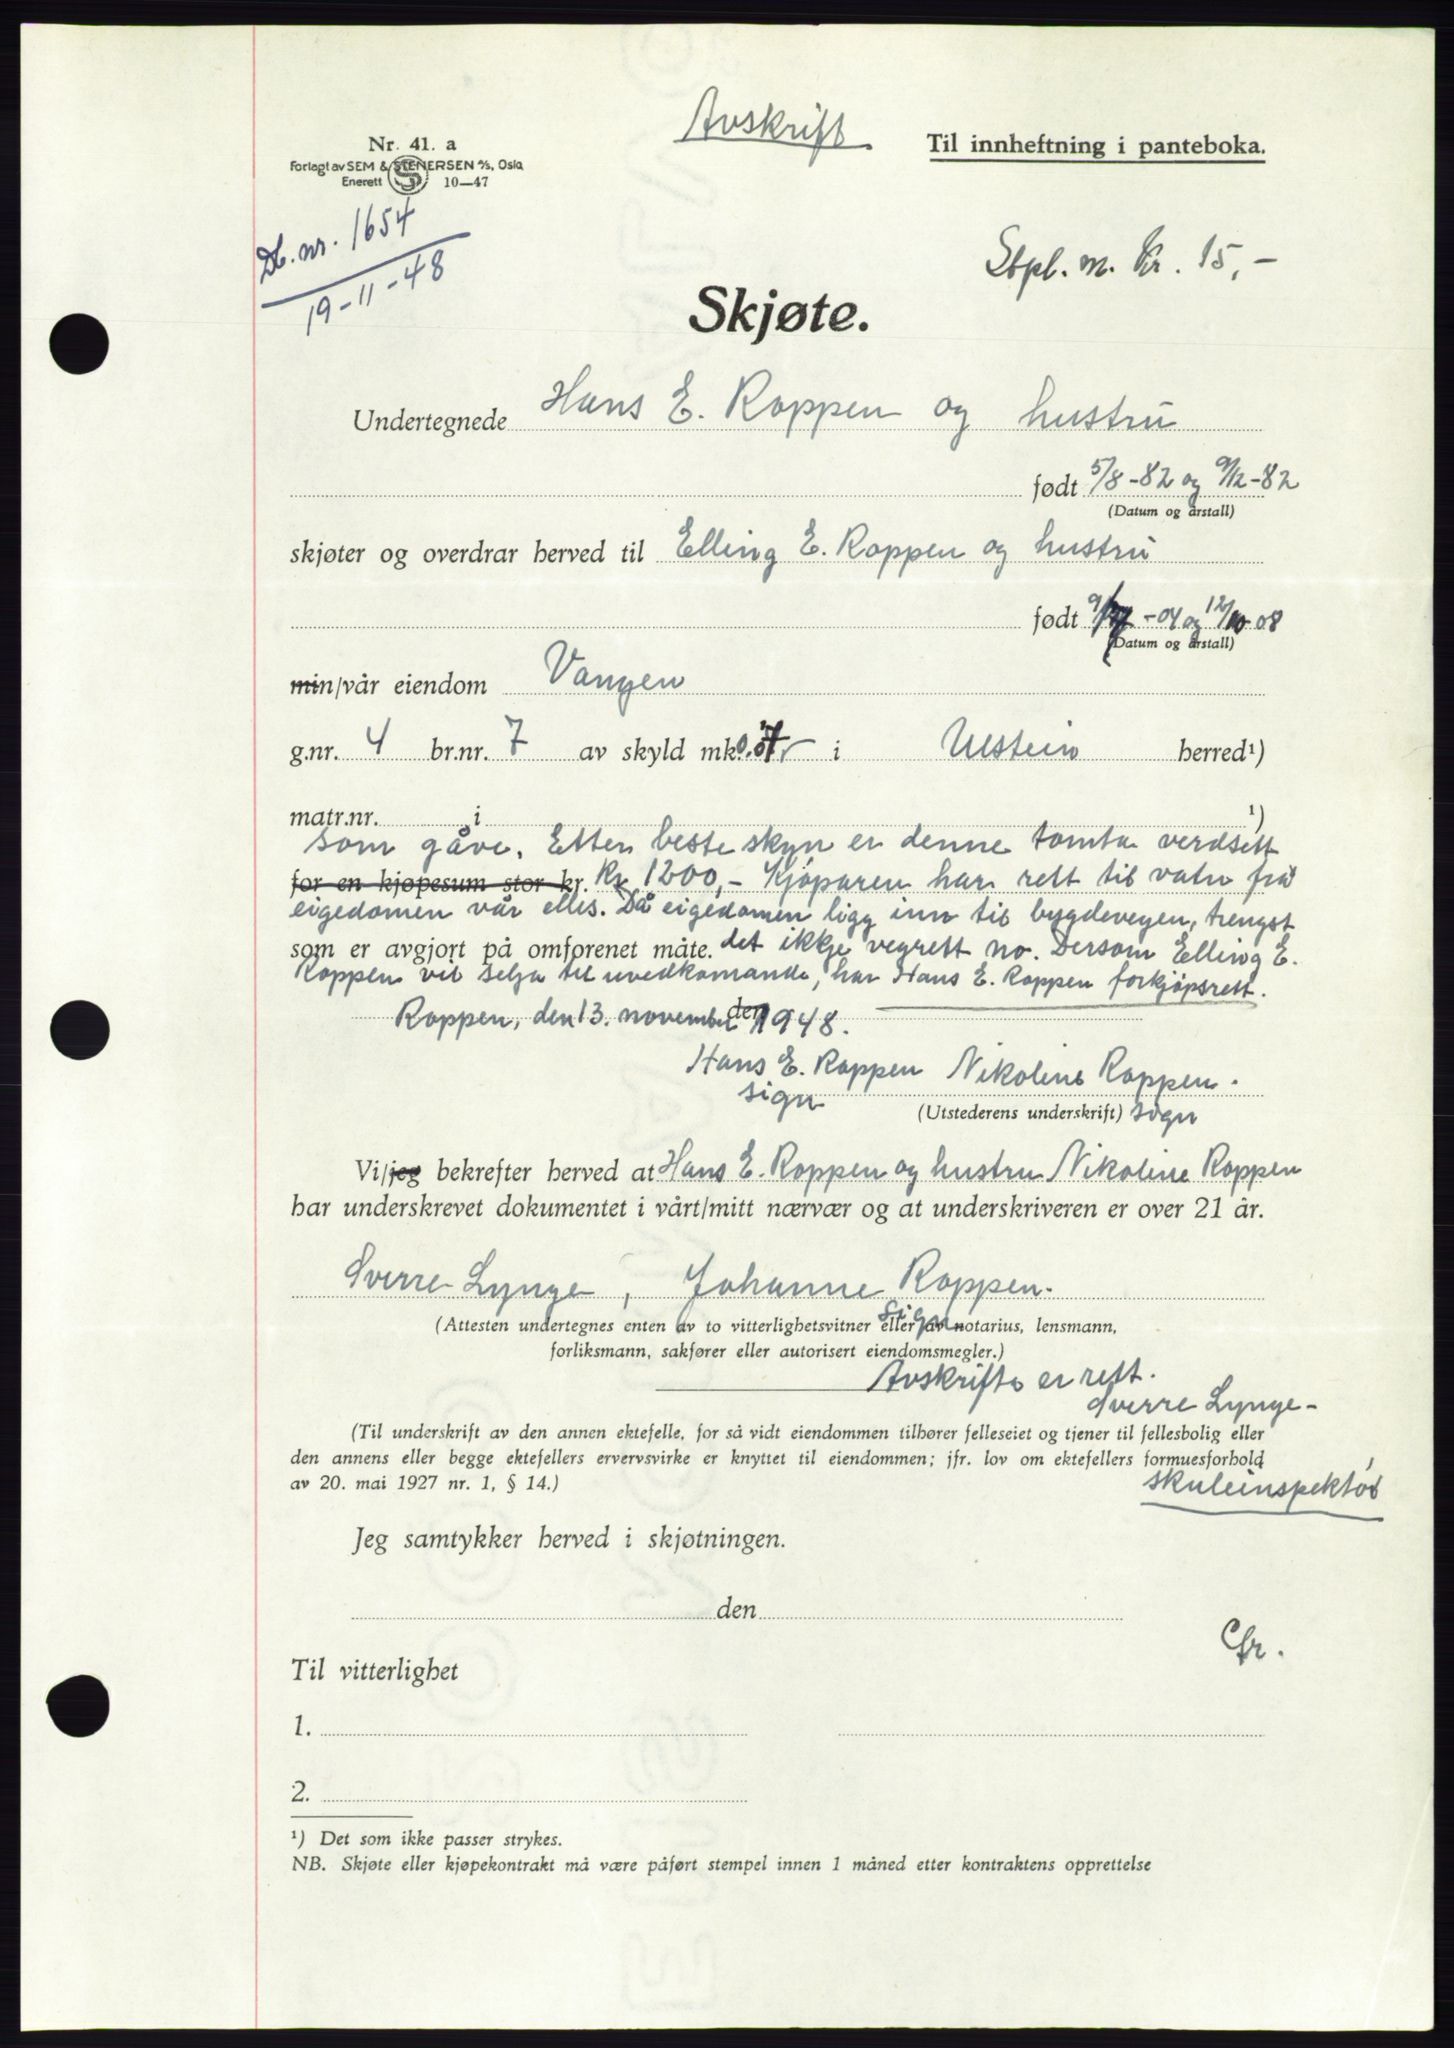 Avskrift
Nr. 41. a
Til innheftning i panteboka.
Forlagt av SEM & STENERSEN A/S, Oslo
Enerett S 10—47
Db. nr. 1654
19-11-48
Stpl. m. kr. 15,-
Skjøte.
Undertegnede Hans E. Roppen og hustru
født 5/8-82 og 9/12-82
(Datum og årstall)
skjøter og overdrar herved til Elling E. Roppen og hustru
født 9/ -04 og 12/10-08
(Datum og årstall)
min/vår eiendom Vangen
g.nr. 4 br.nr. 7 av skyld mk. 0.07 i Ulstein herred¹)
matr.nr. i ¹)
som gåve. Etter beste skyn er denne tomta verdsett
for en kjøpesum stor kr. Kr. 1200,- Kjøparen har rett til vatn frå
eigedomen vår elles. Då eigedomen ligg inn til bygdevegen, trengst
som er avgjort på omforenet måte. det ikkje vegrett no. Dersom Elling E.
Roppen vil selja til uvedkomande, har Hans E. Roppen forkjøpsrett.
Roppen, den 13. november den 1948.
Hans E. Roppen Nikoline Roppen.
sign
(Utstederens underskrift) sign
Vi/jeg bekrefter herved at Hans E. Roppen og hustru Nikoline Roppen
har underskrevet dokumentet i vårt/mitt nærvær og at underskriveren er over 21 år.
Sverre Lynge, Johanne Roppen.
sign
(Attesten undertegnes enten av to vitterlighetsvitner eller av notarius, lensmann,
forliksmann, sakfører eller autorisert eiendomsmegler.)
Avskrifta er rett.
Sverre Lynge-
(Til underskrift av den annen ektefelle, for så vidt eiendommen tilhører felleseiet og tjener til fellesbolig eller
den annens eller begge ektefellers ervervsvirke er knyttet til eiendommen; jfr. lov om ektefellers formuesforhold
av 20. mai 1927 nr. 1, § 14.)
skuleinspektør
Jeg samtykker herved i skjøtningen.
den
Til vitterlighet
1.
2.
¹) Det som ikke passer strykes.
NB. Skjøte eller kjøpekontrakt må være påført stempel innen 1 måned etter kontraktens opprettelse